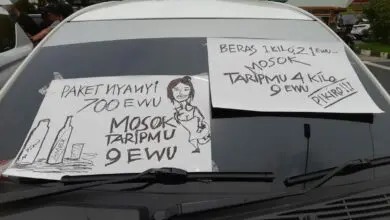 PAKET NYANYI
700 EWU
MOSOK
TARIPMU
9 EWU
BERAS 1 KILO 21 EWU...
MOSOK
TARIPMU 4 KILO
9 EWU
PIKIRO!!!